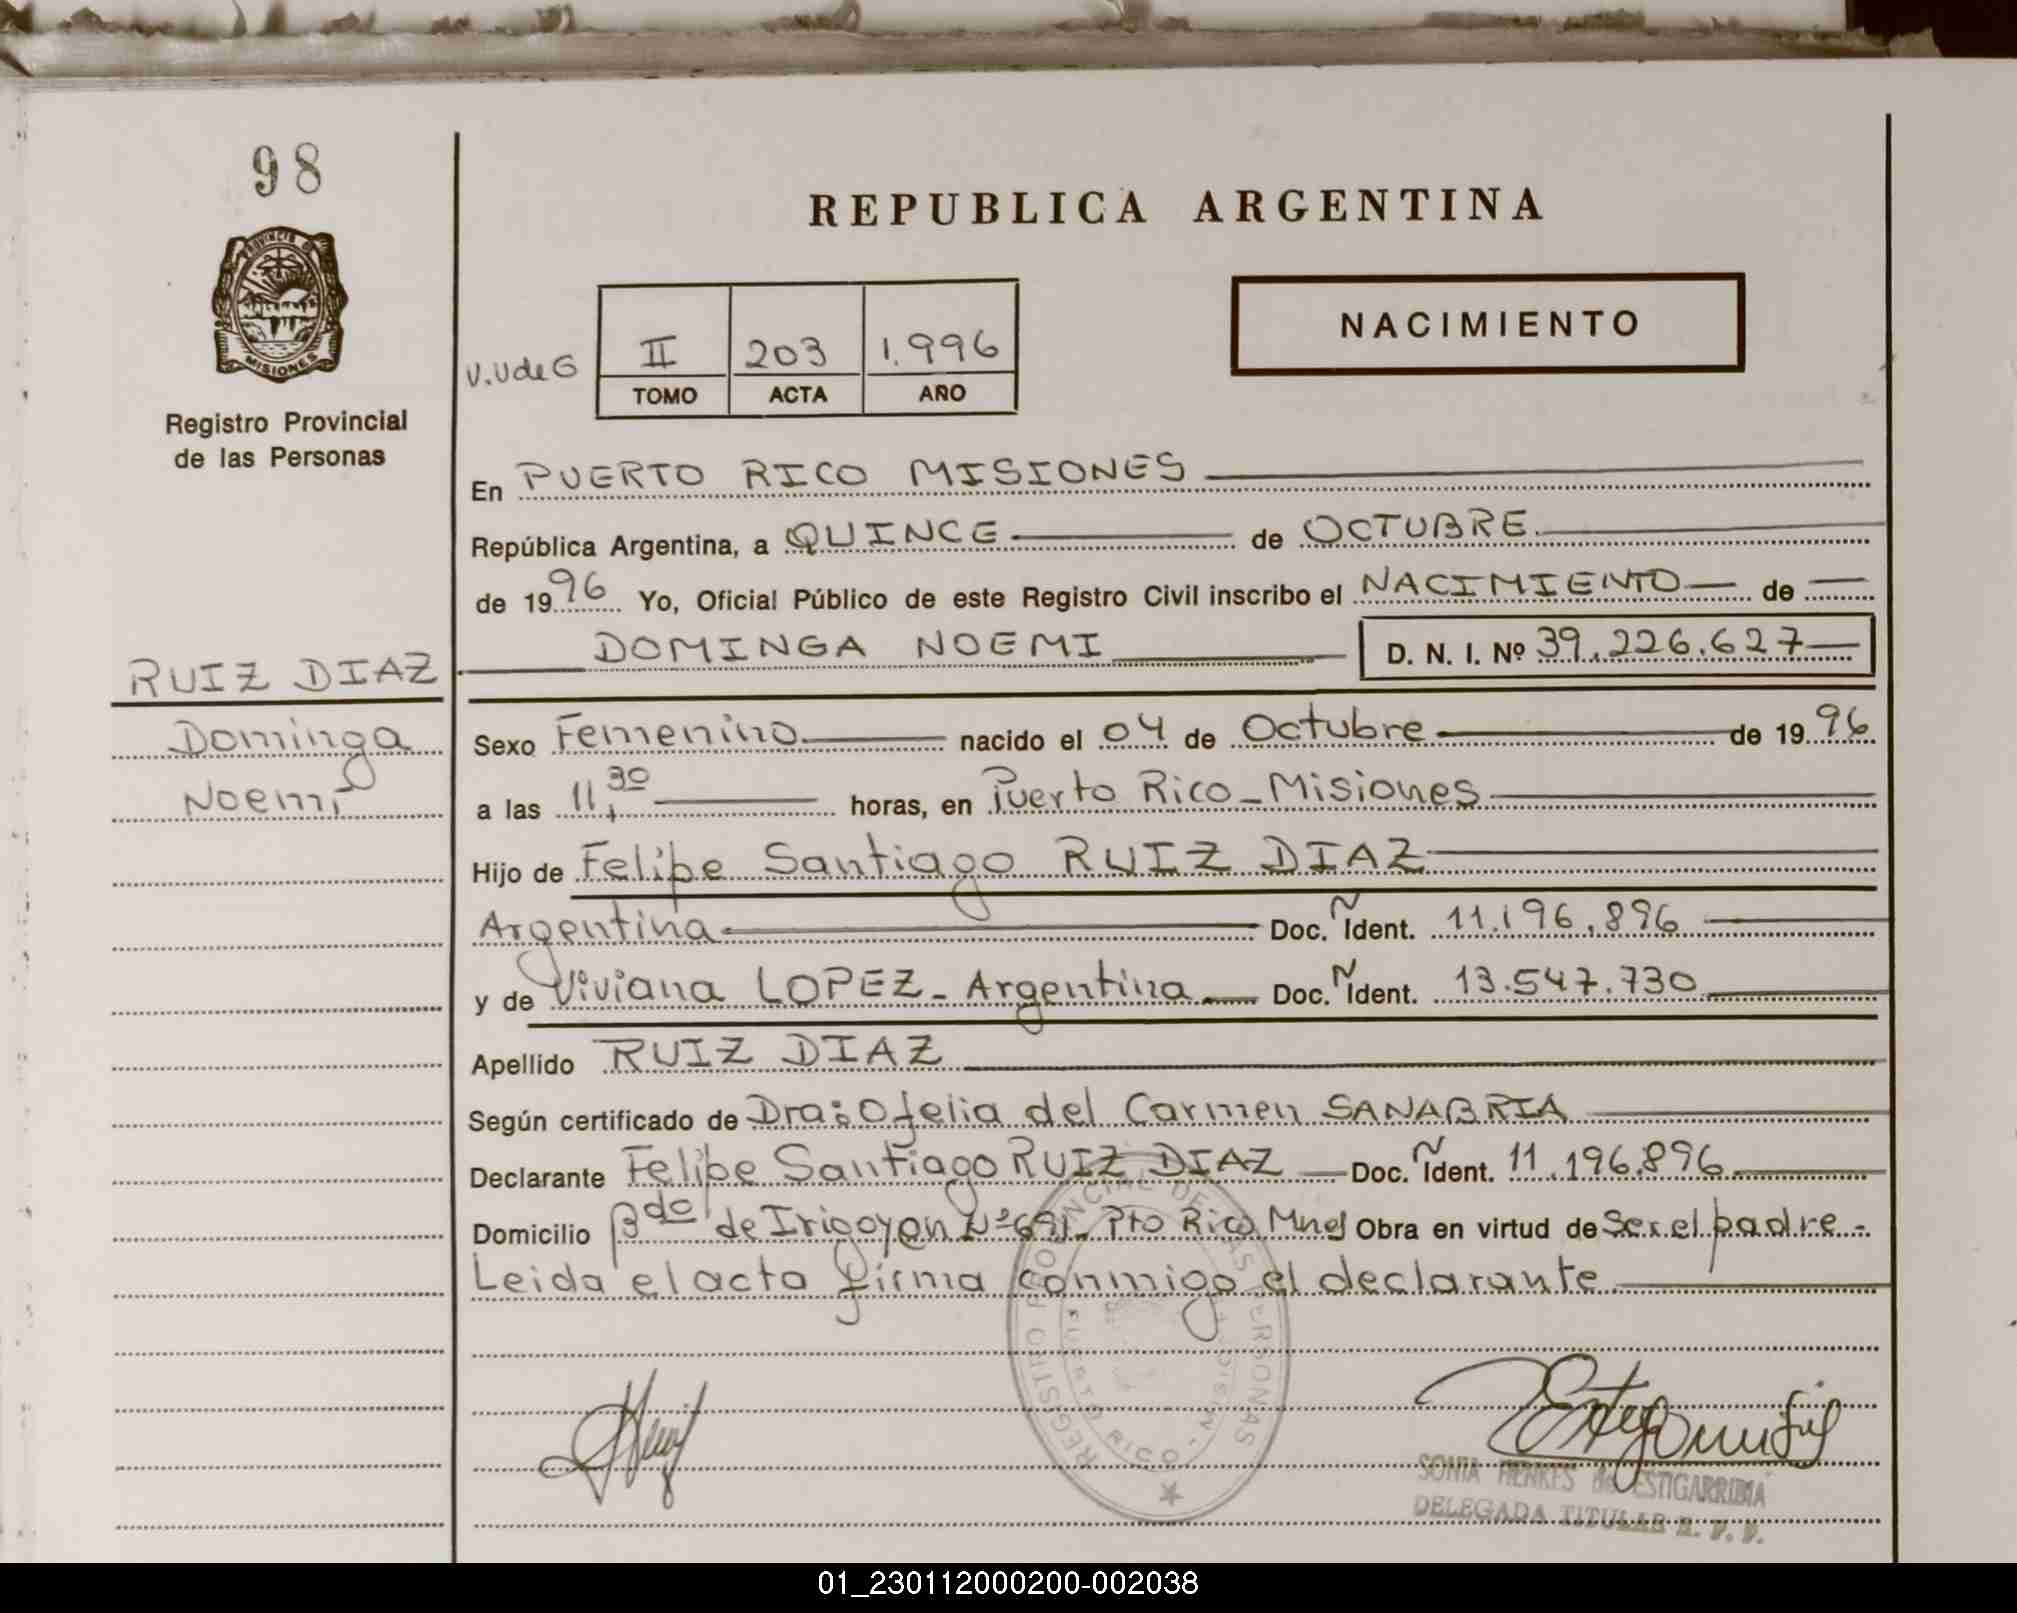 98
PROVINCIA DE
MISIONES
Registro Provincial
de las Personas
REPUBLICA ARGENTINA
NACIMIENTO
V.UdeG
II 203 1.996
TOMO ACTA AÑO
En PUERTO RICO MISIONES
República Argentina, a QUINCE de OCTUBRE
de 1996 Yo, Oficial Público de este Registro Civil inscribo el NACIMIENTO de
DOMINGA NOEMI D. N. I. Nº 39.226.627
RUIZ DIAZ
Dominga
Noemi
Sexo Femenino nacido el 04 de Octubre de 1996
a las 11,30 horas, en Puerto Rico - Misiones
Hijo de Felipe Santiago RUIZ DIAZ
Argentina Doc. Ñ Ident. 11.196.896
y de Viviana LOPEZ - Argentina Doc. Ñ Ident. 13.547.730
Apellido RUIZ DIAZ
Según certificado de Dra: Ofelia del Carmen SANABRIA
Declarante Felipe Santiago RUIZ DIAZ Doc. Ñ Ident. 11.196.896
Domicilio Bdo de Irigoyen Nº 691 - Pto Rico Mnes Obra en virtud de Ser el padre.-
Leida el acta firma conmigo el declarante
REGISTRO PROVINCIAL DE LAS PERSONAS
PUERTO RICO -
SONIA HENKES de ESTIGARRIBIA
DELEGADA TITULAR R. P. P.
01_230112000200-002038